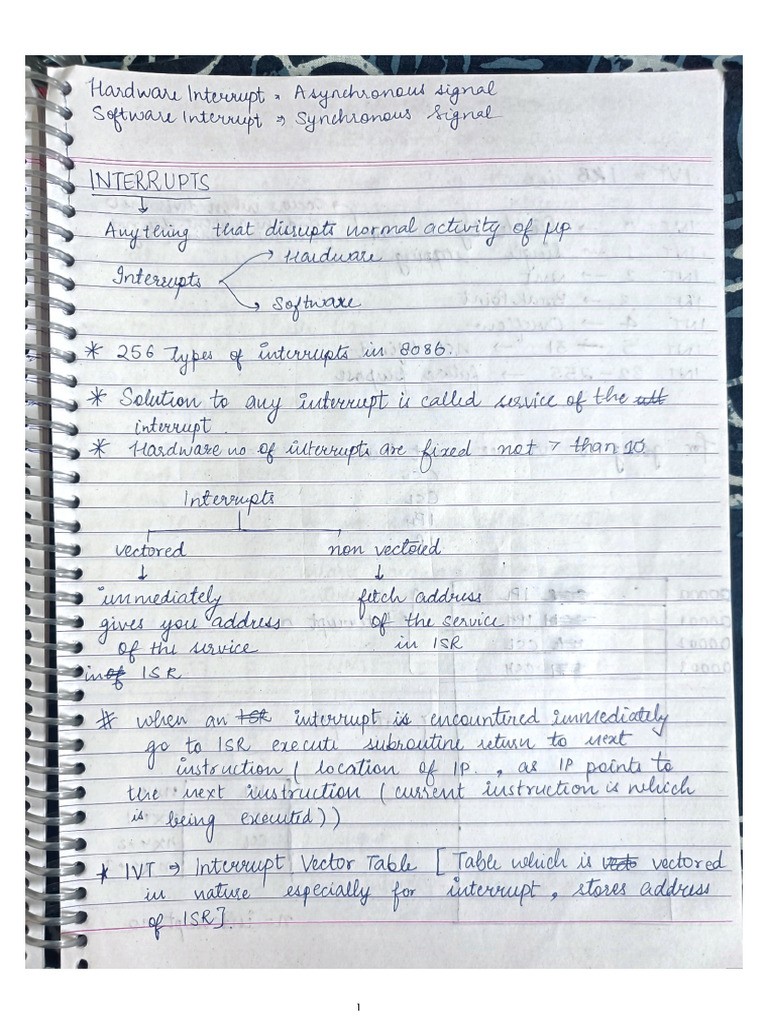 Hardware Interrupt → Asynchronous signal
Software Interrupt → Synchronous Signal
INTERRUPTS
↓
Anything that disrupts normal activity of μp
Hardware
Interrupts
Software
* 256 Types of interrupts in 8086.
* Solution to any interrupt is called service of the
interrupt.
* Hardware no of interrupts are fixed not > than 10
Interrupts
vectored non vectored
↓ ↓
immediately fetch address
gives you address of the service
of the service in ISR
in of ISR
# when an ISR interrupt is encountered immediately
go to ISR execute subroutine return to next
instruction ( location of IP. , as IP points to
the next instruction ( current instruction is which
is being executed))
* IVT → Interrupt Vector Table [ Table which is vecto vectored
in nature especially for interrupt, stores address
of ISR].
1